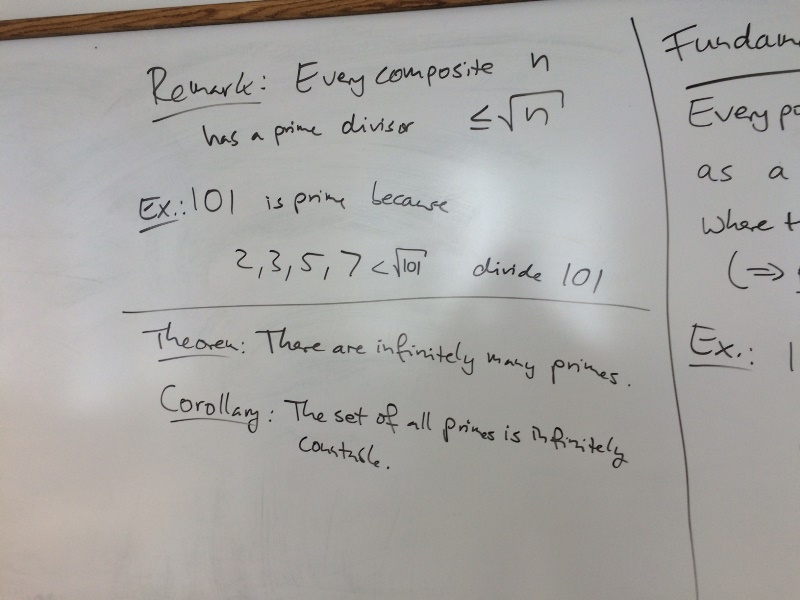 Remark: Every composite n
has a prime divisor ≤ √n
Ex.: 101 is prime because
2, 3, 5, 7 < √101 divide 101
Theorem: There are infinitely many primes.
Corollary: The set of all primes is infinitely
countable.
Fundam
Every po
as a
where t
(⇒
Ex.: 1